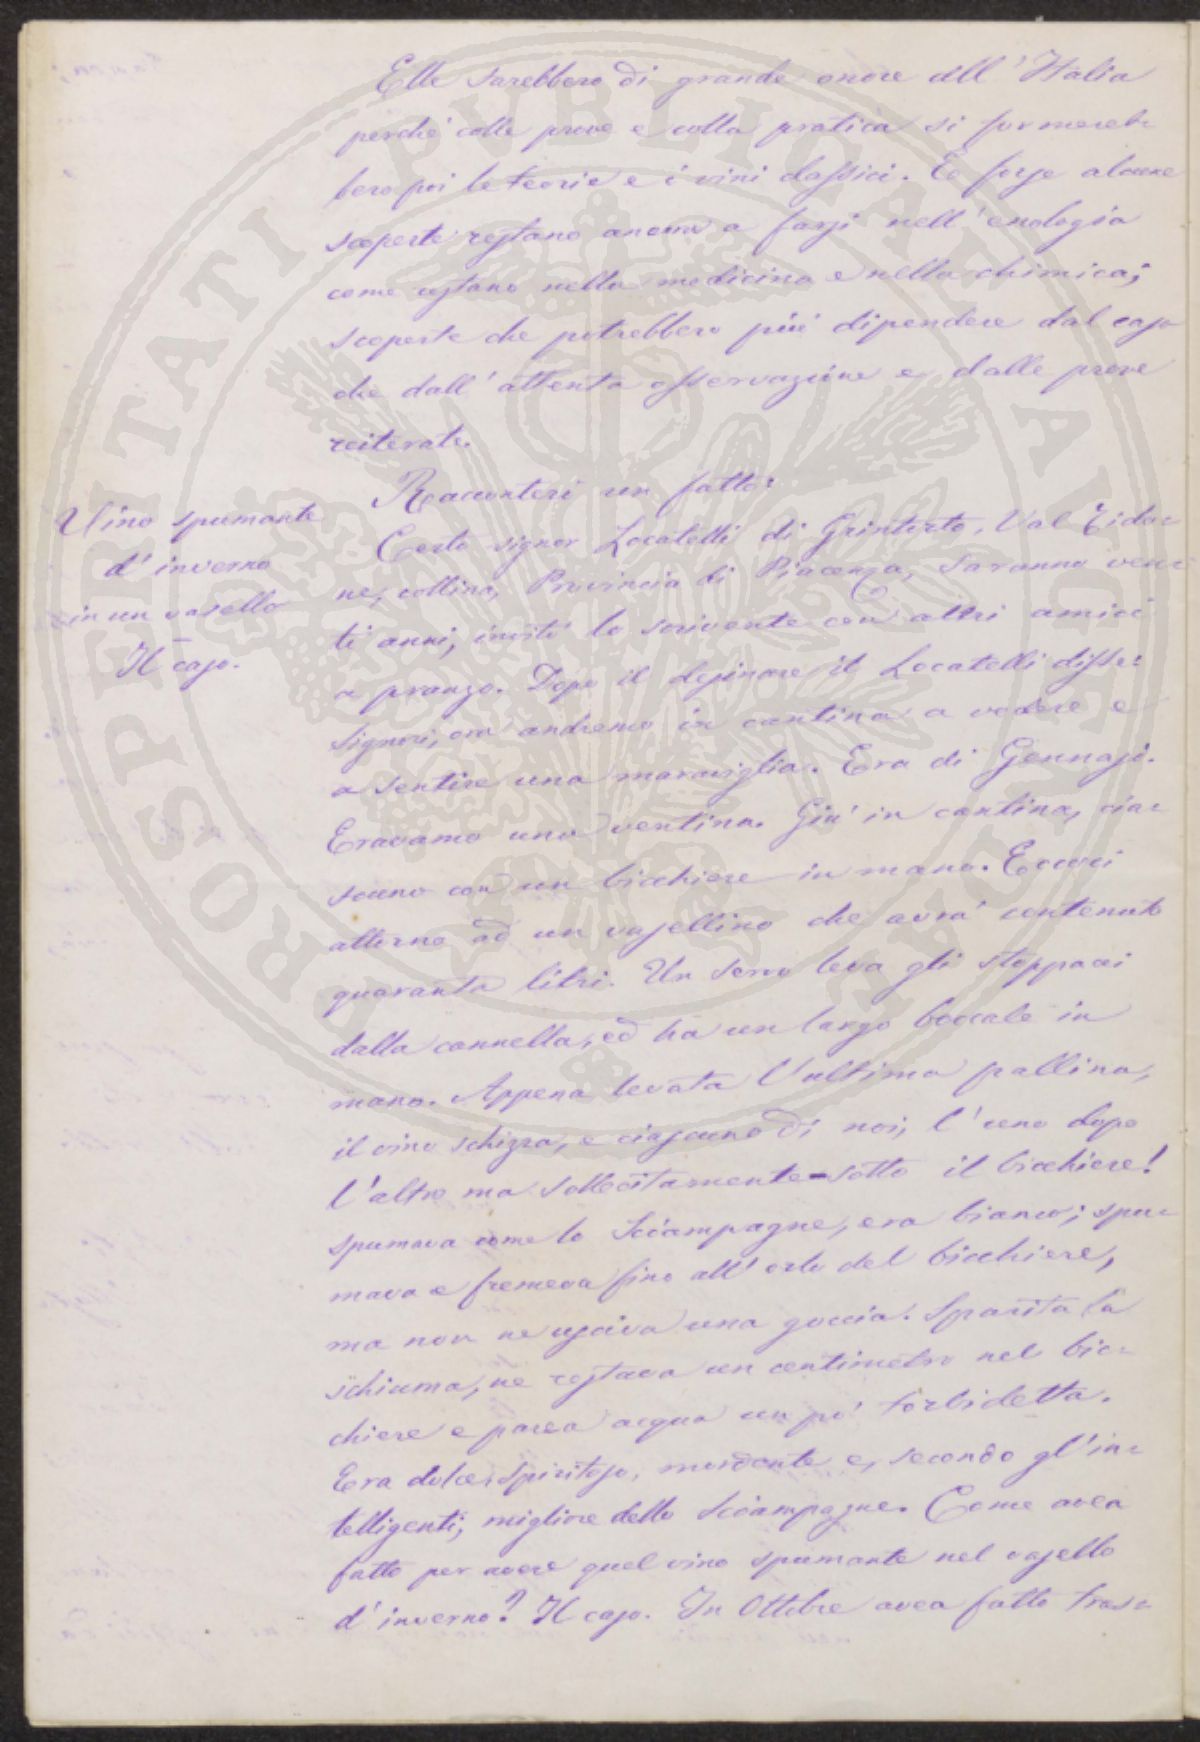 Elle sarebbero di grande onore all'Italia
perchè colle prove e colla pratica si formereb-
bero poi le teorie e i vini classici. E forse alcune
scoperte restano ancora a farsi nell'enologia
come restano nella medicina e nella chimica;
scoperte che potrebbero più dipendere dal caso
che dall'attenta osservazione e dalle prove
reiterate.
Racconterò un fatto:
Vino spumante
d'inverno
in un vasello
Il caso.
Certo signor Locatelli di Grintorto, Val Tido-
ne, collina, Provincia di Piacenza, saranno ven-
ti anni, invitò lo scrivente con altri amici
a pranzo. Dopo il desinare il Locatelli disse:
Signori, ora andremo in cantina a vedere e
a sentire una maraviglia. Era di Gennajo.
Eravamo una ventina. Giù in cantina, cia-
scuno con un bicchiere in mano. Eccoci
attorno ad un vasellino che avrà contenuto
quaranta litri. Un servo leva gli stoppacci
dalla cannella, ed ha un largo boccale in
mano. Appena levata l'ultima pallina,
il vino schizza, e ciascuno di noi, l'uno dopo
l'altro ma sollecitamente-sotto il bicchiere!
spumava come lo Sciampagne, era bianco; spu-
mava e fremeva fino all'orlo del bicchiere,
ma non ne usciva una goccia. Sparita la
schiuma, ne restava un centimetro nel bic-
chiere e parea acqua un po' torbidetta.
Era dolce, spiritoso, mordente e, secondo gl'in-
telligenti, migliore dello Sciampagne. Come avea
fatto per avere quel vino spumante nel vasello
d'inverno? Il caso. In Ottobre avea fatto tras-
PROSPERITATI PVBLICAE AVGENDAE